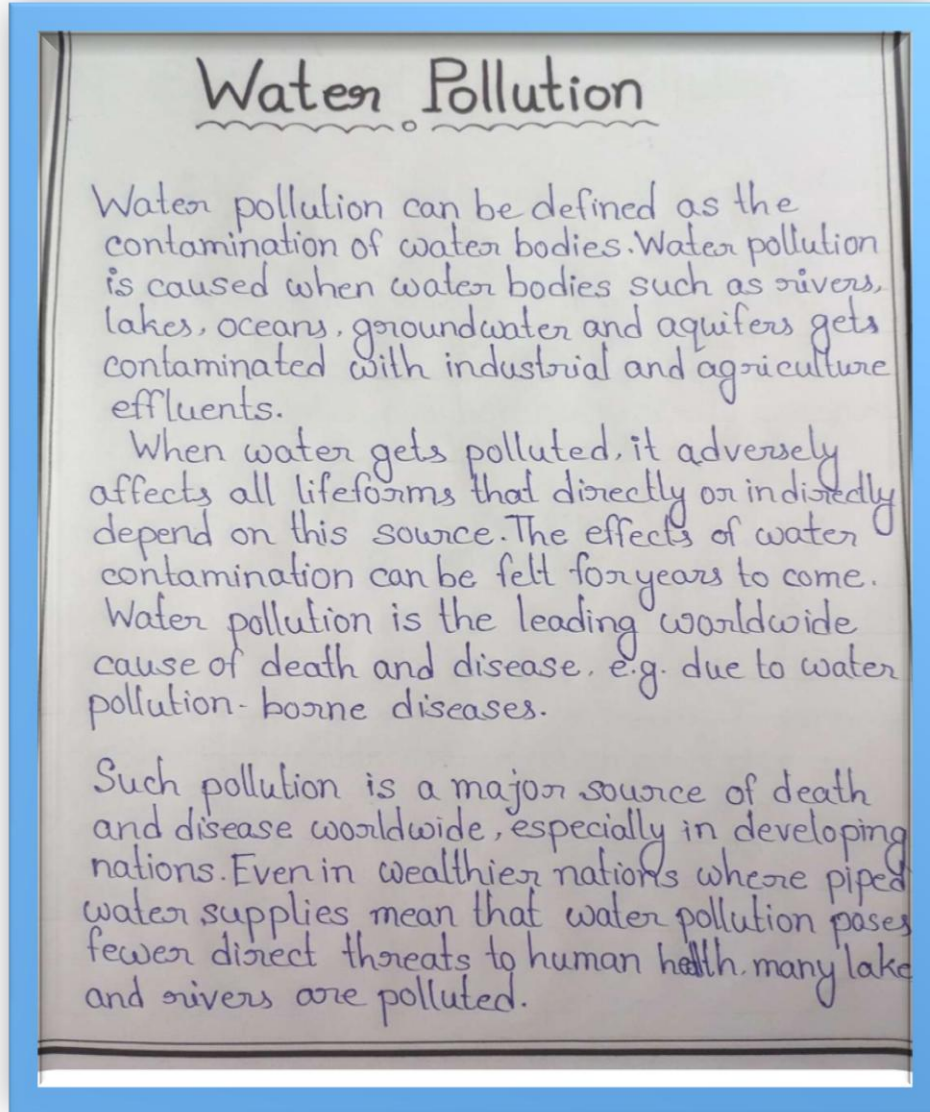 Water Pollution
Water pollution can be defined as the
contamination of water bodies. Water pollution
is caused when water bodies such as rivers,
lakes, oceans, groundwater and aquifers gets
contaminated with industrial and agriculture
effluents.
When water gets polluted, it adversely
affects all lifeforms that directly or indiredly
depend on this source. The effects of water
contamination can be felt for years to come.
Water pollution is the leading worldwide
cause of death and disease, e.g. due to water
pollution- borne diseases.
Such pollution is a major source of death
and disease worldwide, especially in developing
nations. Even in wealthier nations where piped
water supplies mean that water pollution poses
fewer direct threats to human helth, many lake
and rivers are polluted.